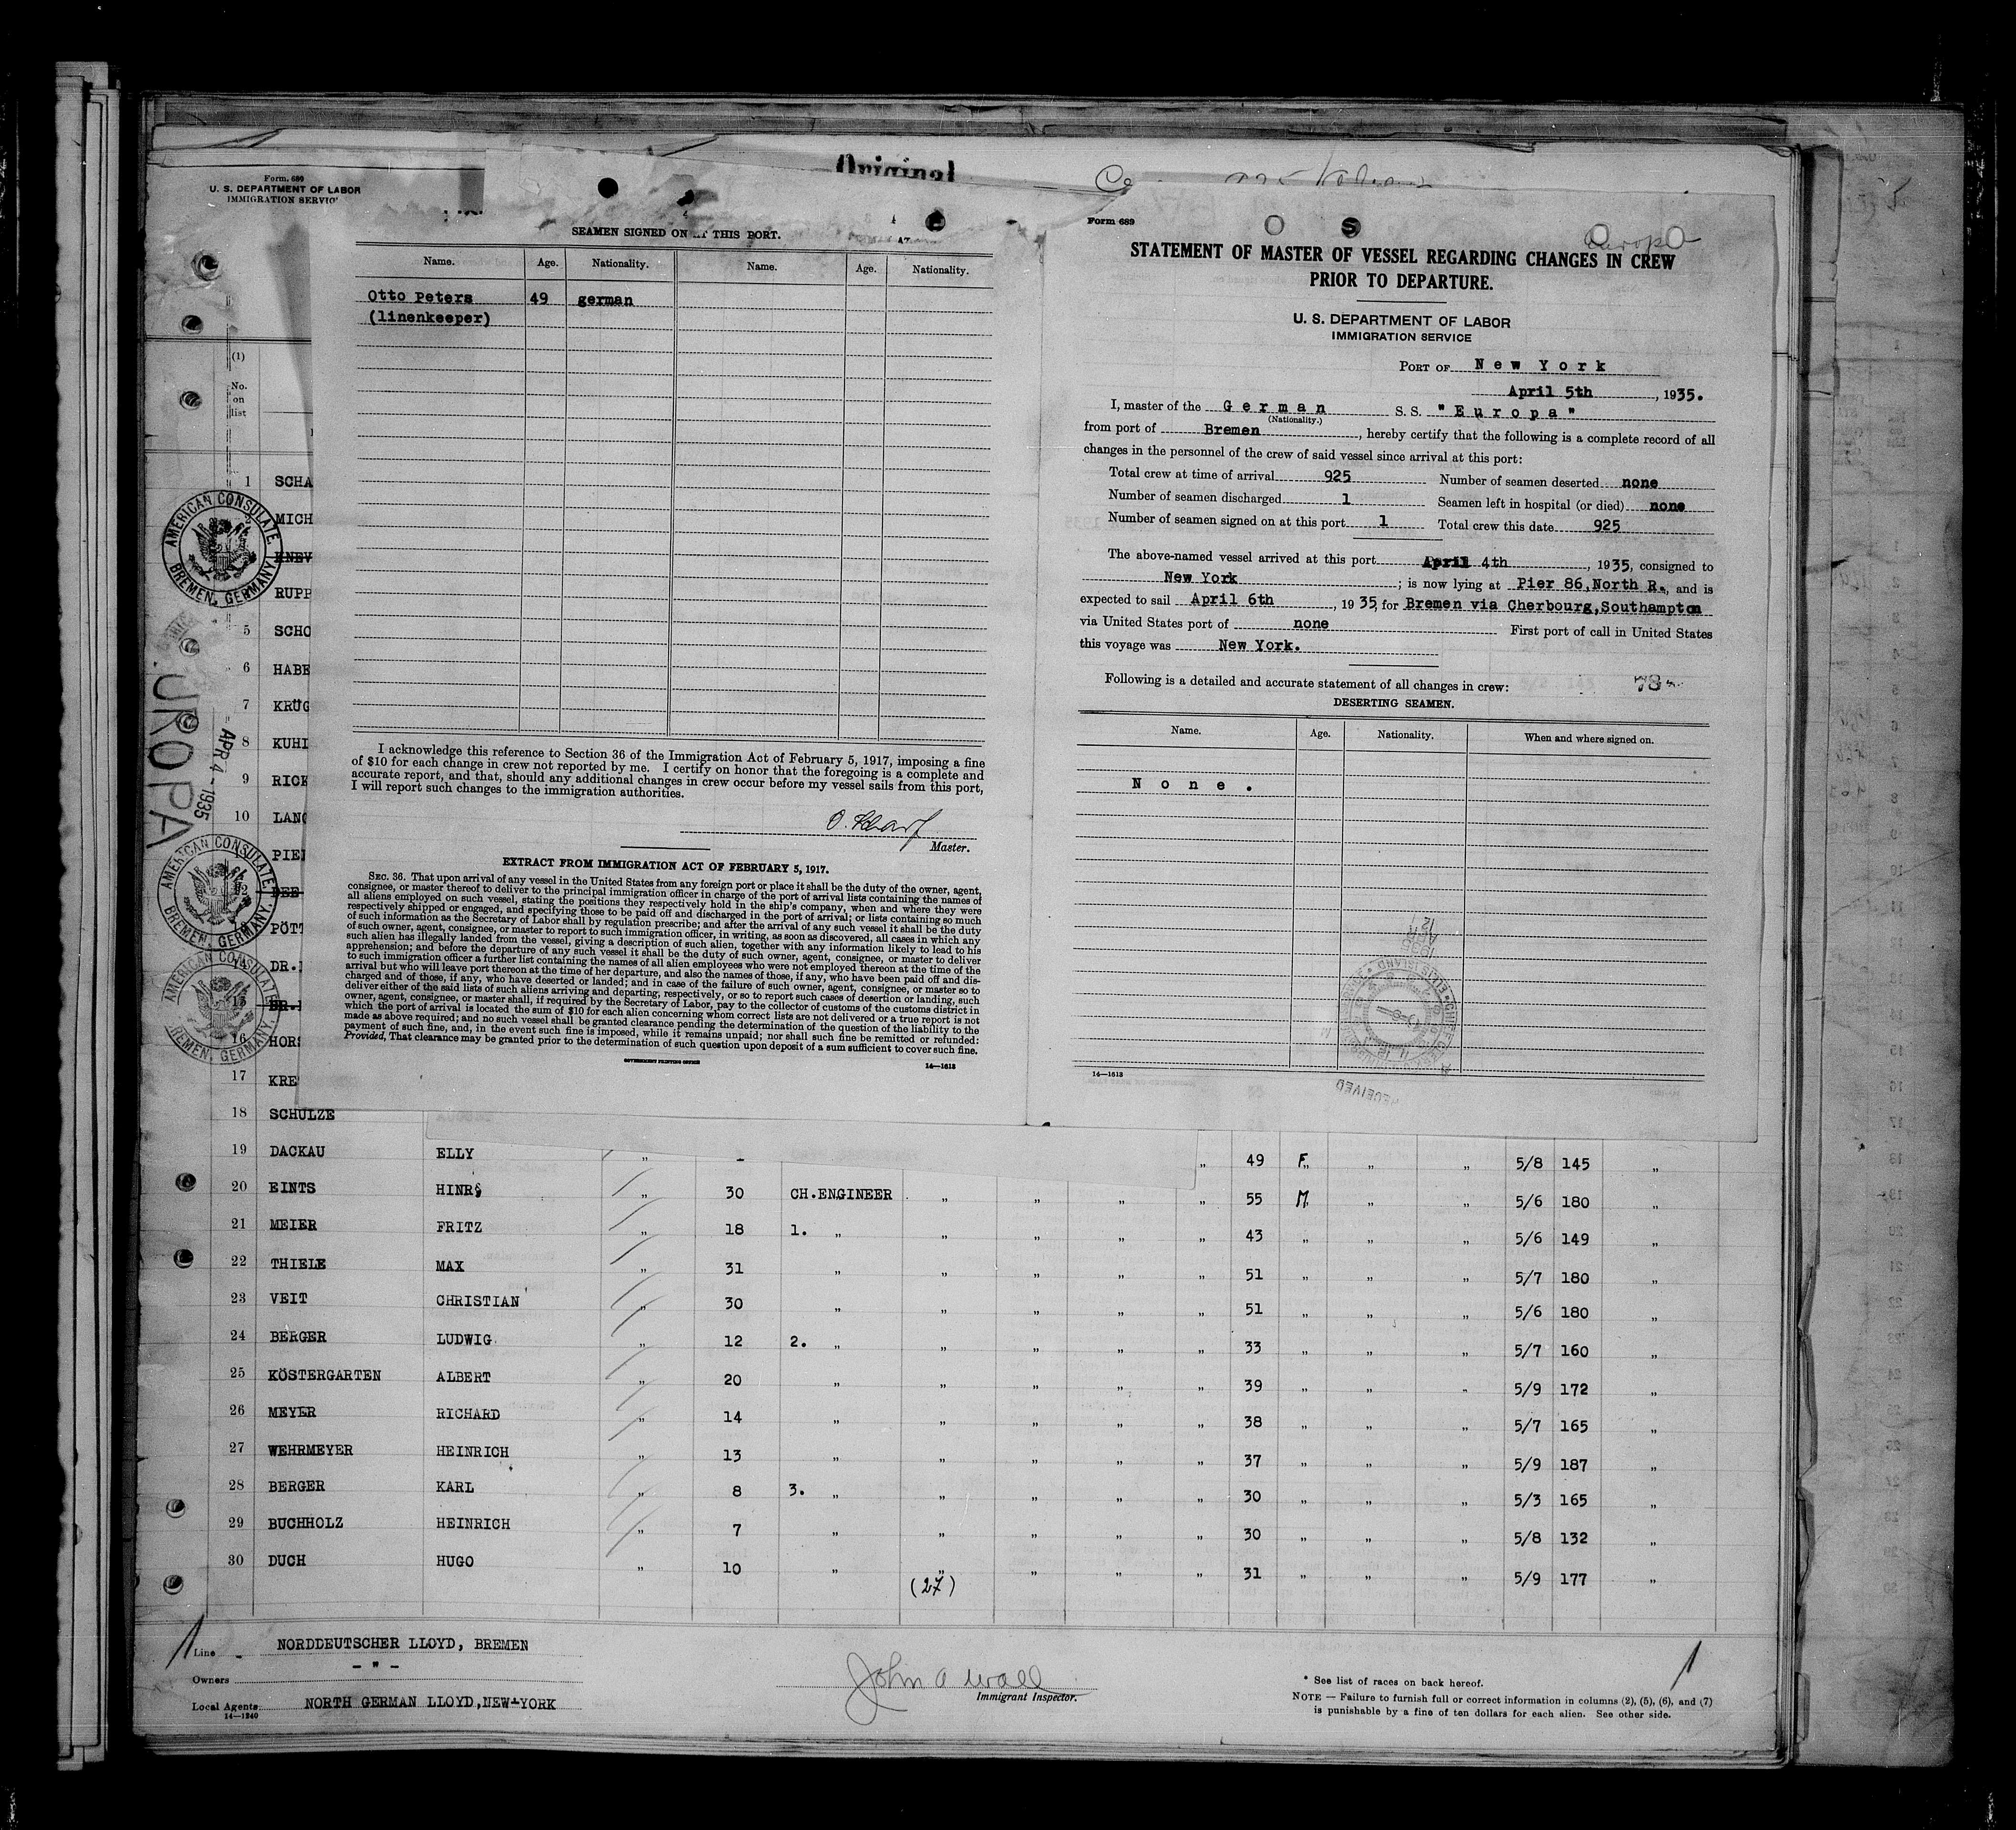 Original
Form. 680
U. S. DEPARTMENT OF LABOR
IMMIGRATION SERVIC
SEAMEN SIGNED ON AT THIS PORT.
Name. Age. Nationality. Name. Age. Nationality.
Otto Peters 49 german
(linenkeeper)
I acknowledge this reference to Section 36 of the Immigration Act of February 5, 1917, imposing a fine
of $10 for each change in crew not reported by me. I certify on honor that the foregoing is a complete and
accurate report, and that, should any additional changes in crew occur before my vessel sails from this port,
I will report such changes to the immigration authorities.
Master.
EXTRACT FROM IMMIGRATION ACT OF FEBRUARY 5, 1917.
SEC. 36. That upon arrival of any vessel in the United States from any foreign port or place it shall be the duty of the owner, agent,
consignee, or master thereof to deliver to the principal immigration officer in charge of the port of arrival lists containing the names of
all aliens employed on such vessel, stating the positions they respectively hold in the ship's company, when and where they were
respectively shipped or engaged, and specifying those to be paid off and discharged in the port of arrival; or lists containing so much
of such information as the Secretary of Labor shall by regulation prescribe; and after the arrival of any such vessel it shall be the duty
of such owner, agent, consignee, or master to report to such immigration officer, in writing, as soon as discovered, all cases in which any
such alien has illegally landed from the vessel, giving a description of such alien, together with any information likely to lead to his
apprehension; and before the departure of any such vessel it shall be the duty of such owner, agent, consignee, or master to deliver
to such immigration officer a further list containing the names of all alien employees who were not employed thereon at the time of the
arrival but who will leave port thereon at the time of her departure, and also the names of those, if any, who have been paid off and dis-
charged and of those, if any, who have deserted or landed; and in case of the failure of such owner, agent, consignee, or master so to
deliver either of the said lists of such aliens arriving and departing, respectively, or so to report such cases of desertion or landing, such
owner, agent, consignee, or master shall, if required by the Secretary of Labor, pay to the collector of customs of the customs district in
which the port of arrival is located the sum of $10 for each alien concerning whom correct lists are not delivered or a true report is not
made as above required; and no such vessel shall be granted clearance pending the determination of the question of the liability to the
payment of such fine, and, in the event such fine is imposed, while it remains unpaid; nor shall such fine be remitted or refunded:
Provided, That clearance may be granted prior to the determination of such question upon deposit of a sum sufficient to cover such fine.
GOVERNMENT PRINTING OFFICE
14—1613
Form 689
Europa
STATEMENT OF MASTER OF VESSEL REGARDING CHANGES IN CREW
PRIOR TO DEPARTURE.
U. S. DEPARTMENT OF LABOR
IMMIGRATION SERVICE
PORT OF New York
April 5th, 1935.
I, master of the German S. S. "Europa"
(Nationality.)
from port of Bremen, hereby certify that the following is a complete record of all
changes in the personnel of the crew of said vessel since arrival at this port:
Total crew at time of arrival 925 Number of seamen deserted none
Number of seamen discharged 1 Seamen left in hospital (or died) none
Number of seamen signed on at this port 1 Total crew this date 925
The above-named vessel arrived at this port April 4th, 1935, consigned to
New York; is now lying at Pier 86,North R., and is
expected to sail April 6th, 1935, for Bremen via Cherbourg,Southampton
via United States port of none First port of call in United States
this voyage was New York.
Following is a detailed and accurate statement of all changes in crew: 78
DESERTING SEAMEN.
Name. Age. Nationality. When and where signed on.
None.
14—1613
RECEIVED
(1)
No.
on
list
1 SCHA
MICH
RUPP
5 SCHO
6 HABE
7 KRÜG
8 KUHI
9 RICK
10 LANG
PIE
PÖTT
DR.
16 HORS
17 KRE
18 SCHULZE
AMERICAN CONSULATE
BREMEN, GERMANY
UROPA
APR 4 - 1935
AMERICAN CONSULATE
BREMEN, GERMANY
AMERICAN CONSULATE
BREMEN, GERMANY
19 DACKAU ELLY " " 49 F. " " 5/8 145 "
20 EINTS HINR. " 30 CH.ENGINEER " " " " 55 M. " " 5/6 180 "
21 MEIER FRITZ " 18 1. " " " " " 43 " " " 5/6 149 "
22 THIELE MAX " 31 " " " " " 51 " " " 5/7 180 "
23 VEIT CHRISTIAN " 30 " " " " " 51 " " " 5/6 180 "
24 BERGER LUDWIG " 12 2. " " " " " 33 " " " 5/7 160 "
25 KÖSTERGARTEN ALBERT " 20 " " " " " 39 " " " 5/9 172 "
26 MEYER RICHARD " 14 " " " " " 38 " " " 5/7 165 "
27 WEHRMEYER HEINRICH " 13 " " " " " 37 " " " 5/9 187 "
28 BERGER KARL " 8 3. " " " " " 30 " " " 5/3 165 "
29 BUCHHOLZ HEINRICH " 7 " " " " " 30 " " " 5/8 132 "
30 DUCH HUGO " 10 " " " " " 31 " " " 5/9 177 "
(27)
Line NORDDEUTSCHER LLOYD, BREMEN
Owners - " -
Local Agents NORTH GERMAN LLOYD,NEW-YORK
14—1240
John A Wall
Immigrant Inspector.
* See list of races on back hereof.
NOTE — Failure to furnish full or correct information in columns (2), (5), (6), and (7)
is punishable by a fine of ten dollars for each alien. See other side.